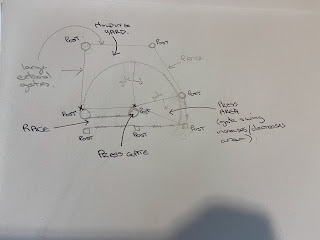 HOLDING
YARD.
POST
POST
LARGE
EXTERNAL
GATES.
PANELS
POST
POST
POST
POST
RACE
POST
POST
PRESS GATE
PRESS
AREA
(gate swing
increases/decreases
area)